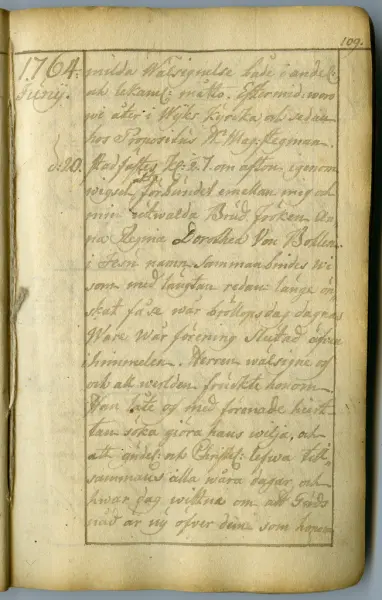 109.
1764. milda Wälsignelse både i andel:
Junij. och lekaml: måtto. Eftermid: woro
wi åter i Wyks Kyrcka och sedan
hos Præpositus Mag: Stegman.
d. 20. Stadfästes Kl: 2. 7. om afton, igenom
wigsel förbundet emellan mig och
min utwalda Brud, fröken An
na Regina Dorothea Von Bohlen.
i Jesu namn sammanbindes wi
som med längtan redan länge ön
skat få se wår bröllopsdag dagas
Ware wår förening slutad öfwer
himmelen. Herren wälsigne oss
och all werlden frukte honom.
Han låte oss med förenade hjert
tan söka giöra hans wilja, och
att gudel: och Christel: lefwa till
sammans alla wåra dagar, och
hwar dag wittna om att Guds
nåd är ny öfver dem som hopas